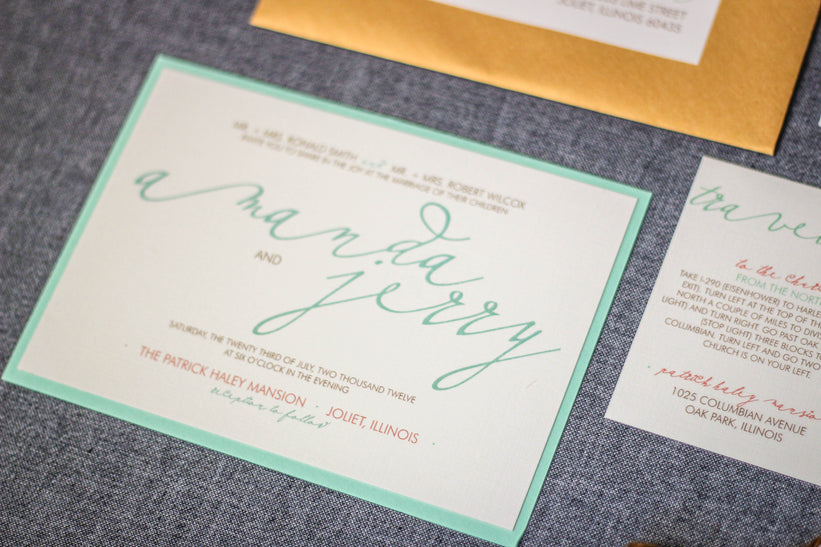 LIME STREET
JOLIET, ILLINOIS 60435
MR. + MRS. RONALD SMITH and MR. + MRS. ROBERT WILCOX
INVITE YOU TO SHARE IN THE JOY AT THE MARRIAGE OF THEIR CHILDREN
amanda
AND
jerry
SATURDAY, THE TWENTY THIRD OF JULY, TWO THOUSAND TWELVE
AT SIX O'CLOCK IN THE EVENING
THE PATRICK HALEY MANSION · JOLIET, ILLINOIS
reception to follow
to the
FROM THE NORTH
TAKE I-290 (EISENHOWER) TO
EXIT). TURN LEFT AT THE TOP OF THE
NORTH A COUPLE OF MILES TO
LIGHT) AND TURN RIGHT. GO PAST OAK
(STOP LIGHT) THREE BLOCKS TO
COLUMBIAN. TURN LEFT AND GO TWO
CHURCH IS ON YOUR LEFT.
patrick haley mansion
1025 COLUMBIAN AVENUE
OAK PARK, ILLINOIS